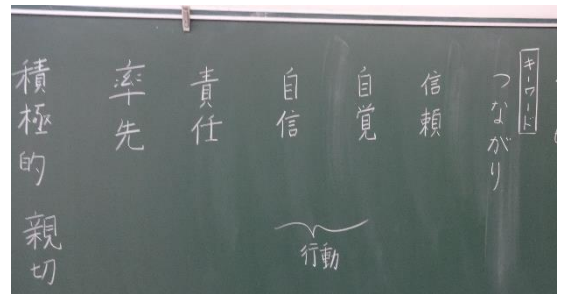 キーワード
つながり
信頼
自覚
自信
行動
責任
率先
積極的 親切